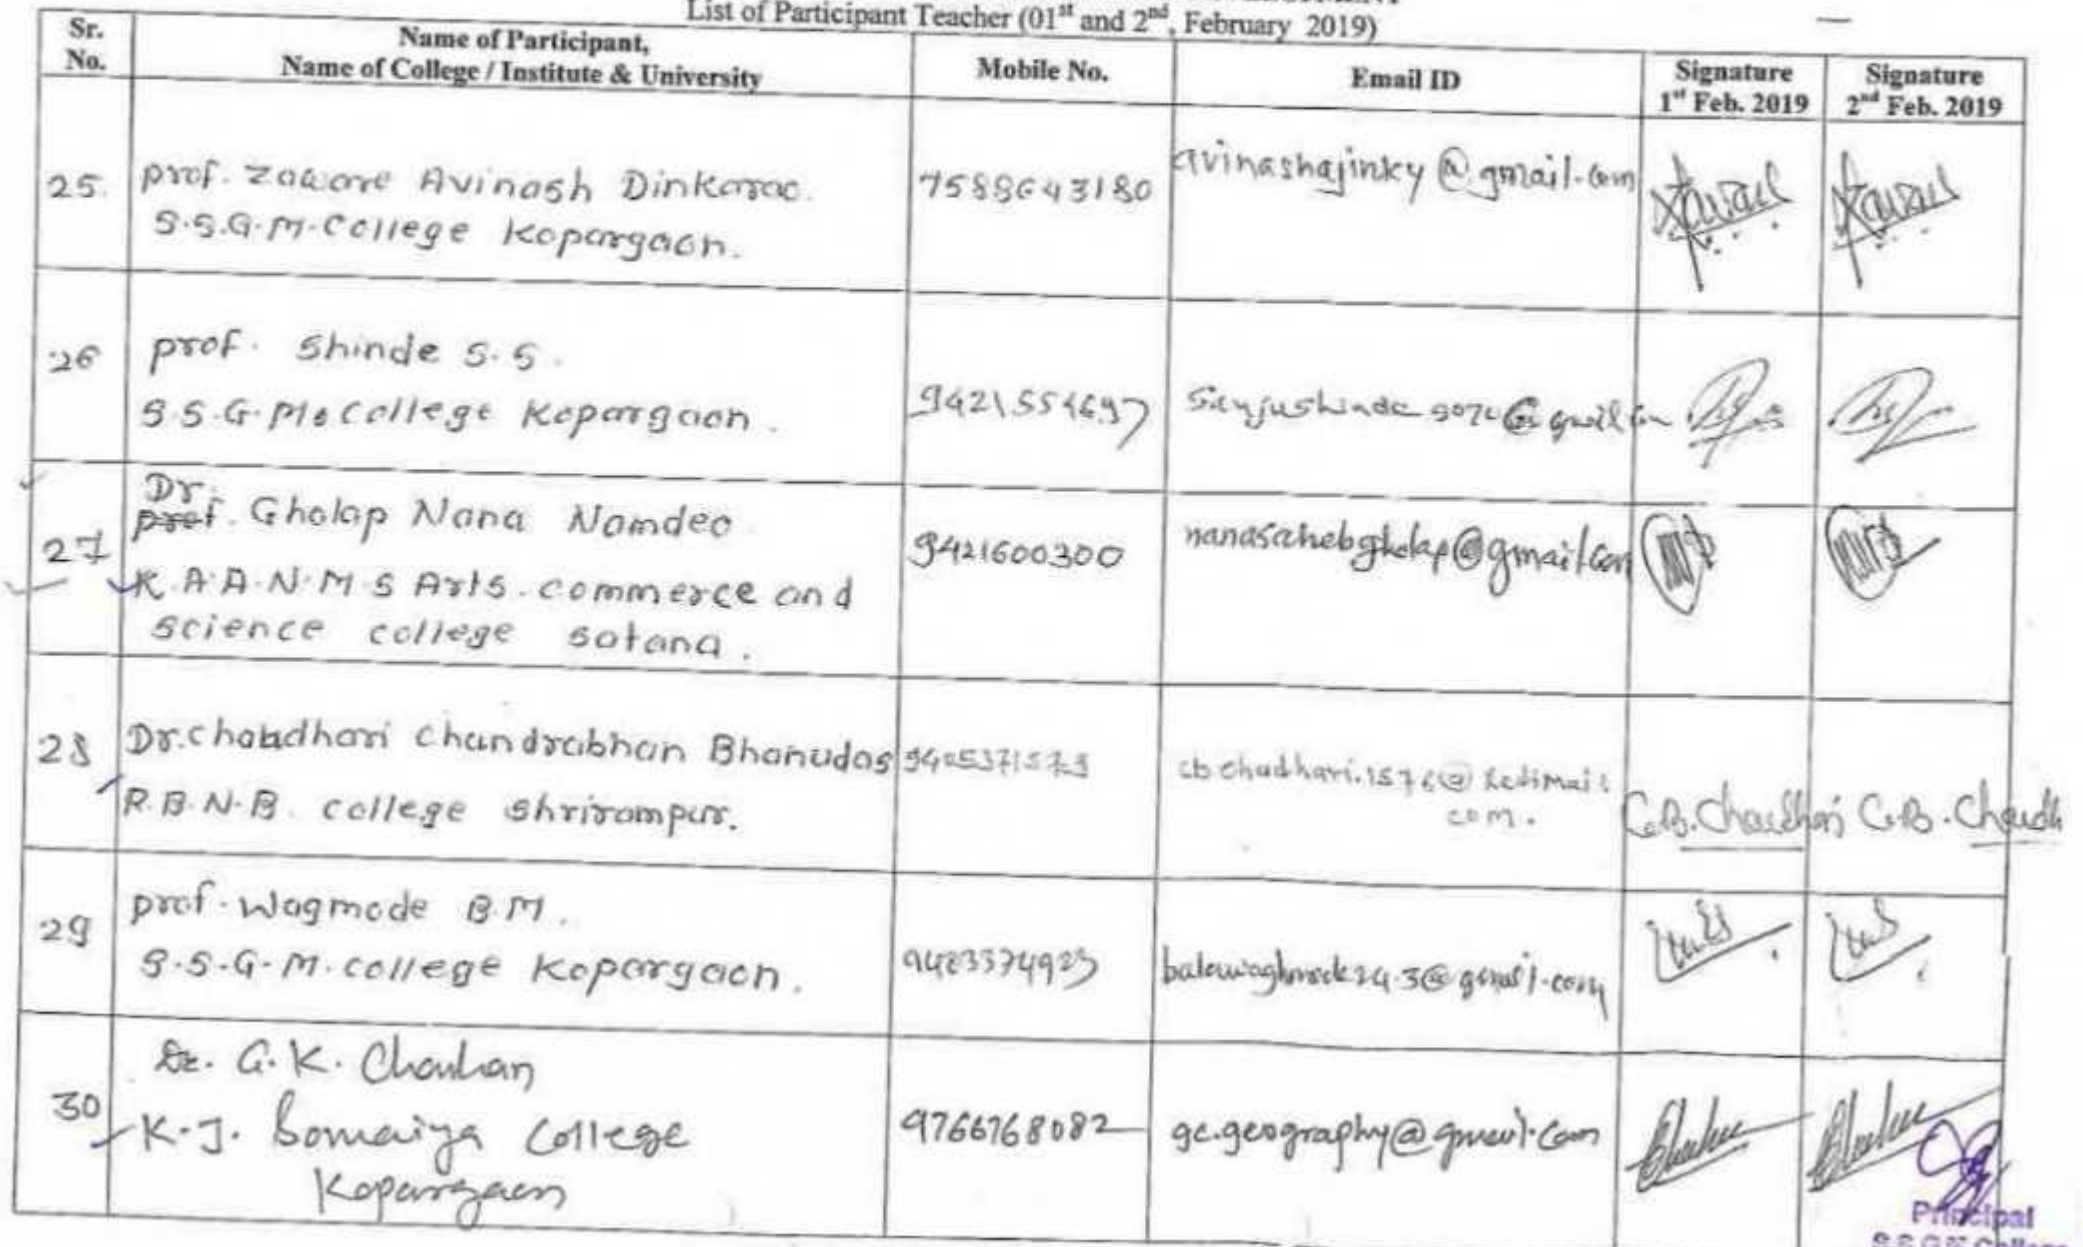 List of Participant Teacher (01st and 2nd, February 2019)
Sr. No.
Name of Participant,
Name of College / Institute & University
Mobile No.
Email ID
Signature
1st Feb. 2019
Signature
2nd Feb. 2019
25.
prof. Zaware Avinash Dinkarao.
S.S.G.M. College Kopargaon.
7588643180
avinashajinky@gmail.com
26
prof. Shinde S.S.
S.S.G.M. College Kopargaon.
27
Dr.
prof. Gholap Nana Namdeo
K.A.A.N.M.S Arts. commerce and
science college satana.
9421600300
nanasahebgholap@gmail.com
28
Dr. Chaudhari Chandrabhan Bhanudas
R.B.N.B. college Shrirampur.
com.
C.B. Chaudhari
C.B. Chaudh
29
prof. Wagmode B.M.
S.S.G.M. college Kopargaon.
30
Dr. G.K. Chauhan
K.J. Somaiya College
Kopargaon
9766768082
gc.geography@gmail.com
Principal